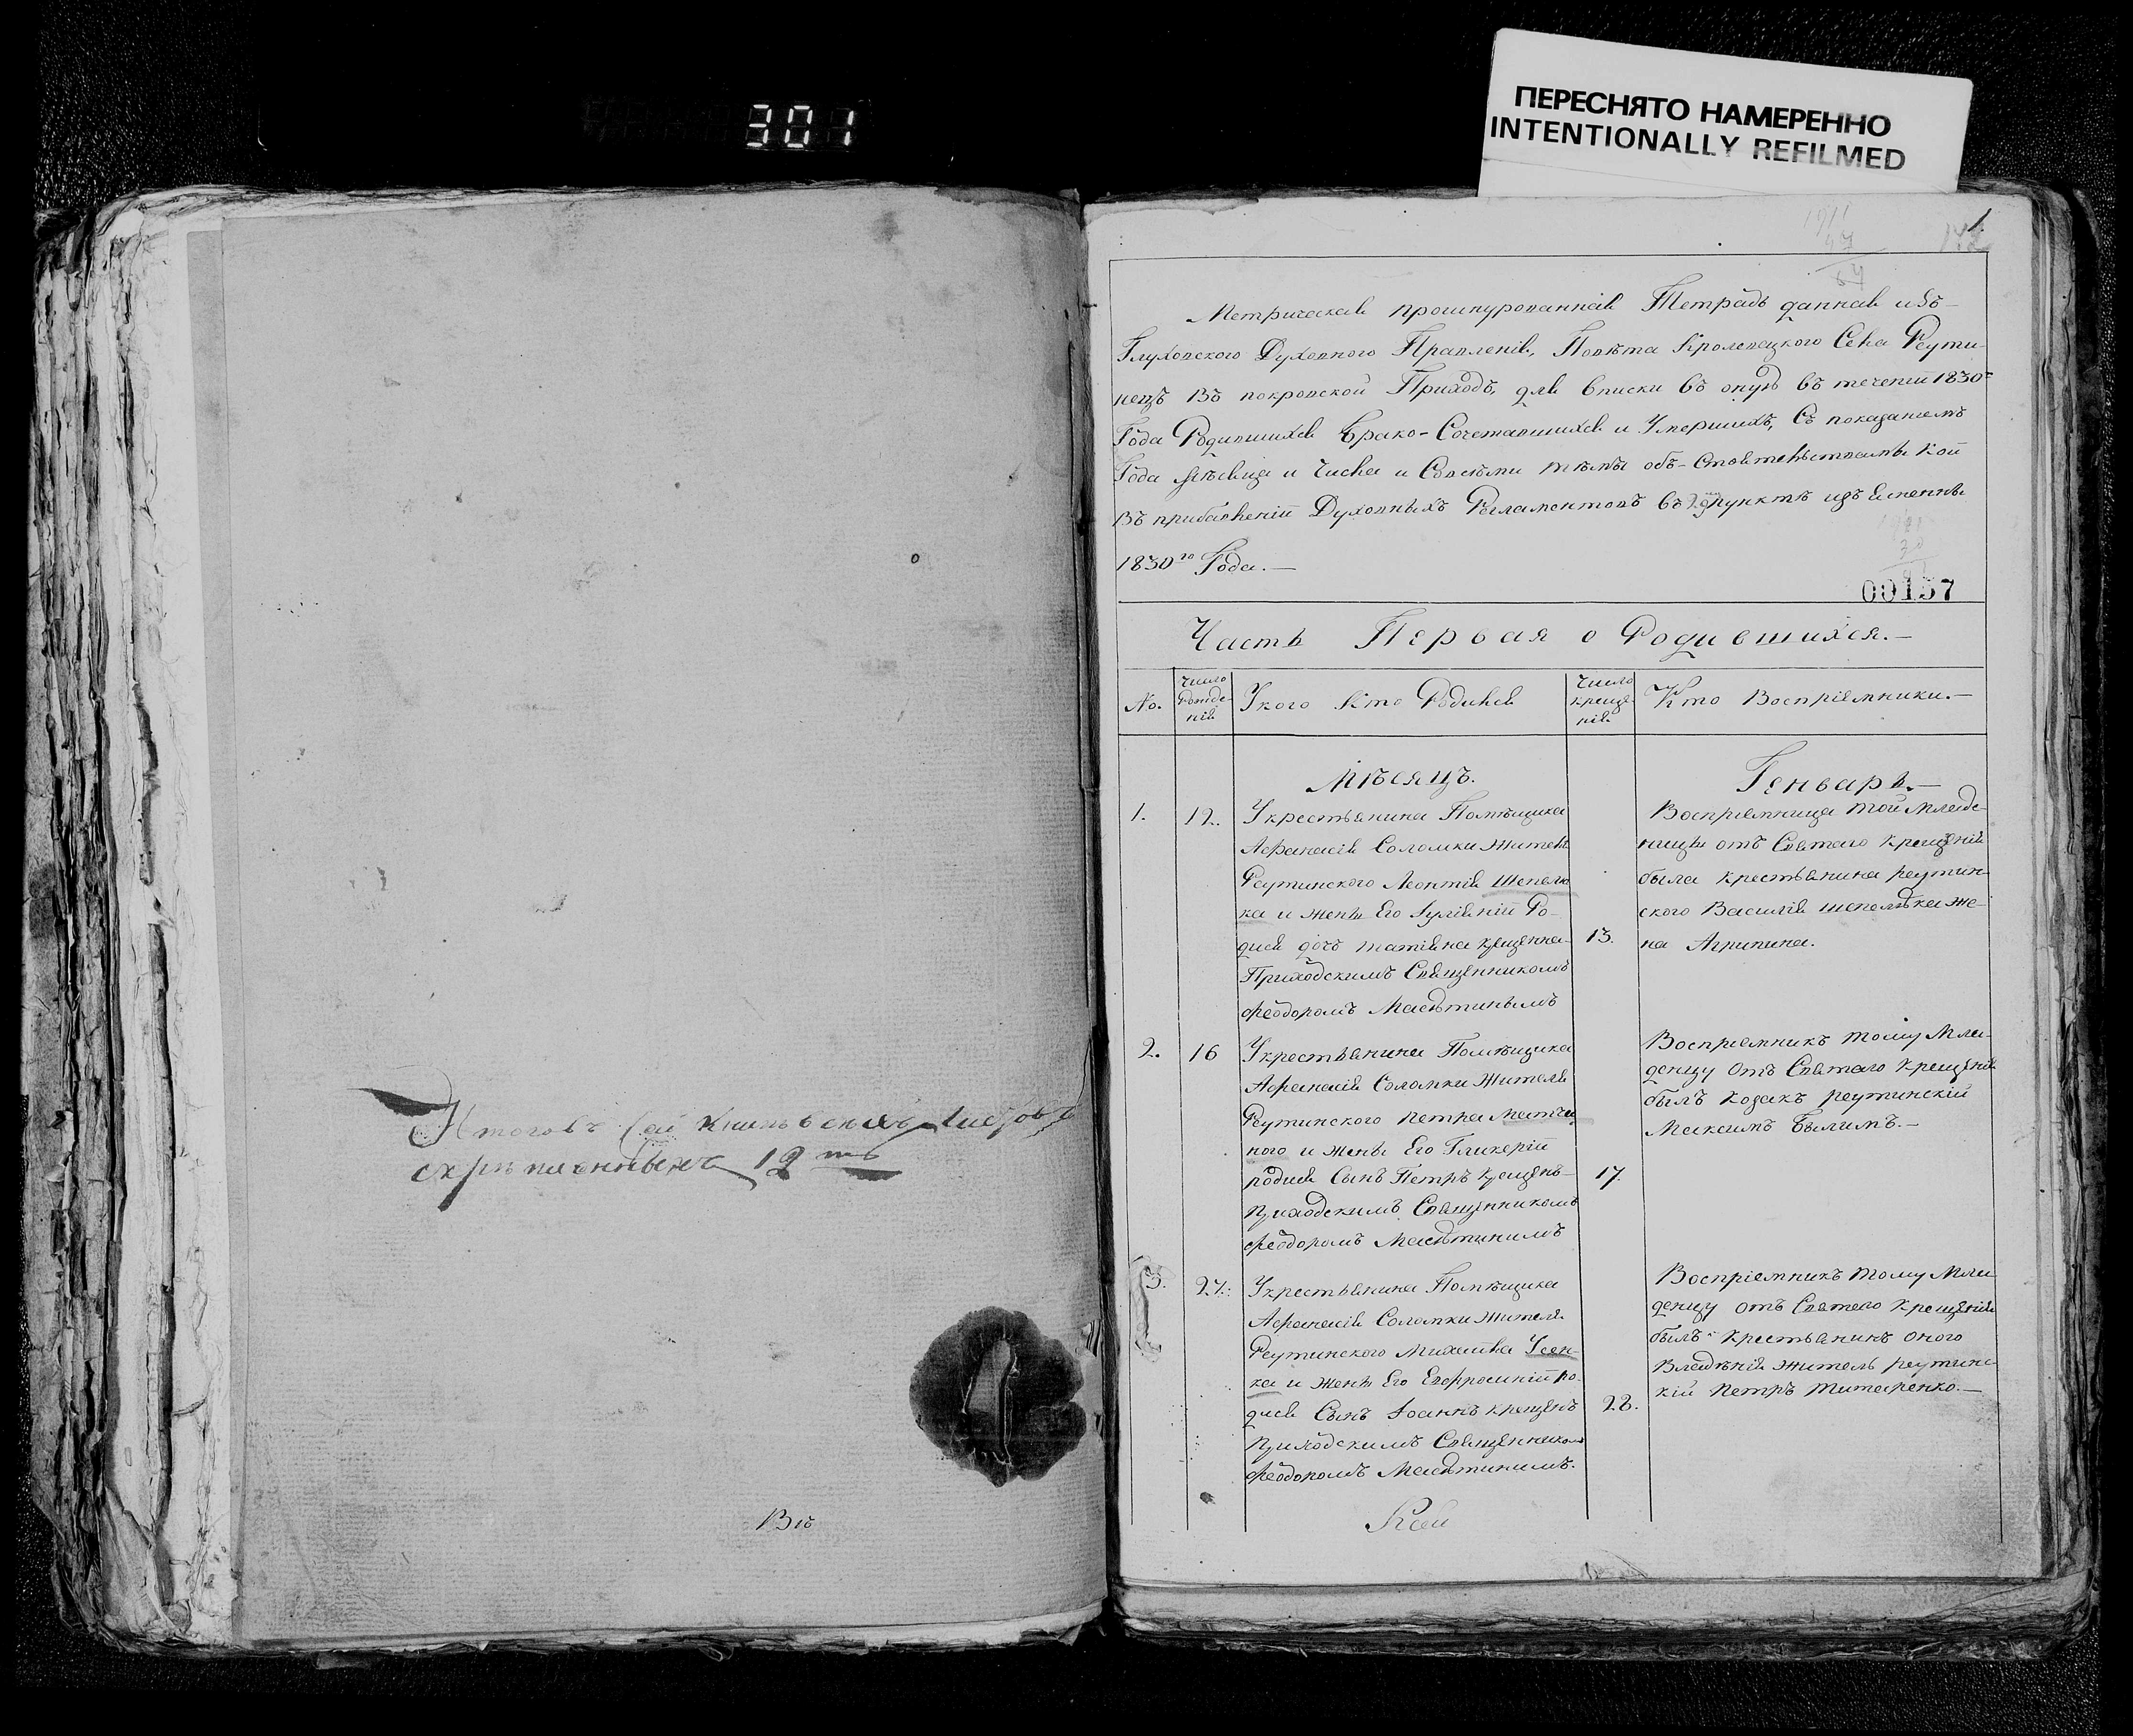 301
ПЕРЕСНЯТО НАМЕРЕННО
INTENTIONALLY REFILMED
1.
Метрическая прошнурованная Тетрадь данная изъ
Глуховского Духовного Правленія, Повѣта Кролевецкого Села Реути-
нецъ Въ покровской Приходъ, для вписки въ оную въ теченіи 1830го
Года Родившихся Брако-Сочетавшихся и Умершихъ, Съ показаніемъ
Года мѣсяца и Числа и Совсѣми тѣмы объ-стоятельствамы кои
Въ прибавленіи Духовныхъ Регламентовъ въ пунктѣ изъ
1830го Года.—
00157
Часть Первая о Родившихся.—
No.
Число Рожде-нія
Укого Кто Родился
Число креще-нія
Кто Воспріемники.—
Мѣсяцъ.
Генварь.—
1.
12.
Укрестьянина Помѣщика
Афанасія Соломки Жителя
Реутинского Леонтія Шепелю
ка и жены Его Іуліяніи Ро-
дися дочь татіяна крещенна
Приходскимъ Священникомъ
Феодоромъ Масютинымъ
13.
Воспріемница той Младе-
ницы отъ Святаго крещенія
была крестьянина реутин-
ского Василія шепелюка же-
на Агрипина.
2.
16
Укрестьянина Помѣщика
Афанасія Соломки Жителя
Реутинского Петра
ного и Жены Его Гликеріи
родися Сынъ Петръ крещенъ
приходскимъ Священникомъ
Феодоромъ Масютинимъ
17.
Воспріемникъ тому Мла-
денцу Отъ Святаго крещенія
былъ козакъ реутинскій
Максимъ Былимъ.—
3.
27.
Укрестьянина Помѣщика
Афанасія Соломки Жителя
Реутинского Михаила Усен-
ка и жены Его Евфросиніи ро-
дися Сынъ Іоаннъ крещенъ
приходскимъ Священникомъ
Феодоромъ Масютинимъ.
28.
Воспріемникъ тому Мла-
денцу отъ Святаго крещенія
былъ крестьянинъ оного
Владѣнія житель реутинс
кій Петръ Титаренко.—
Итого въ сей книгѣ листовъ
скрѣпленныхъ 12ть
Въ